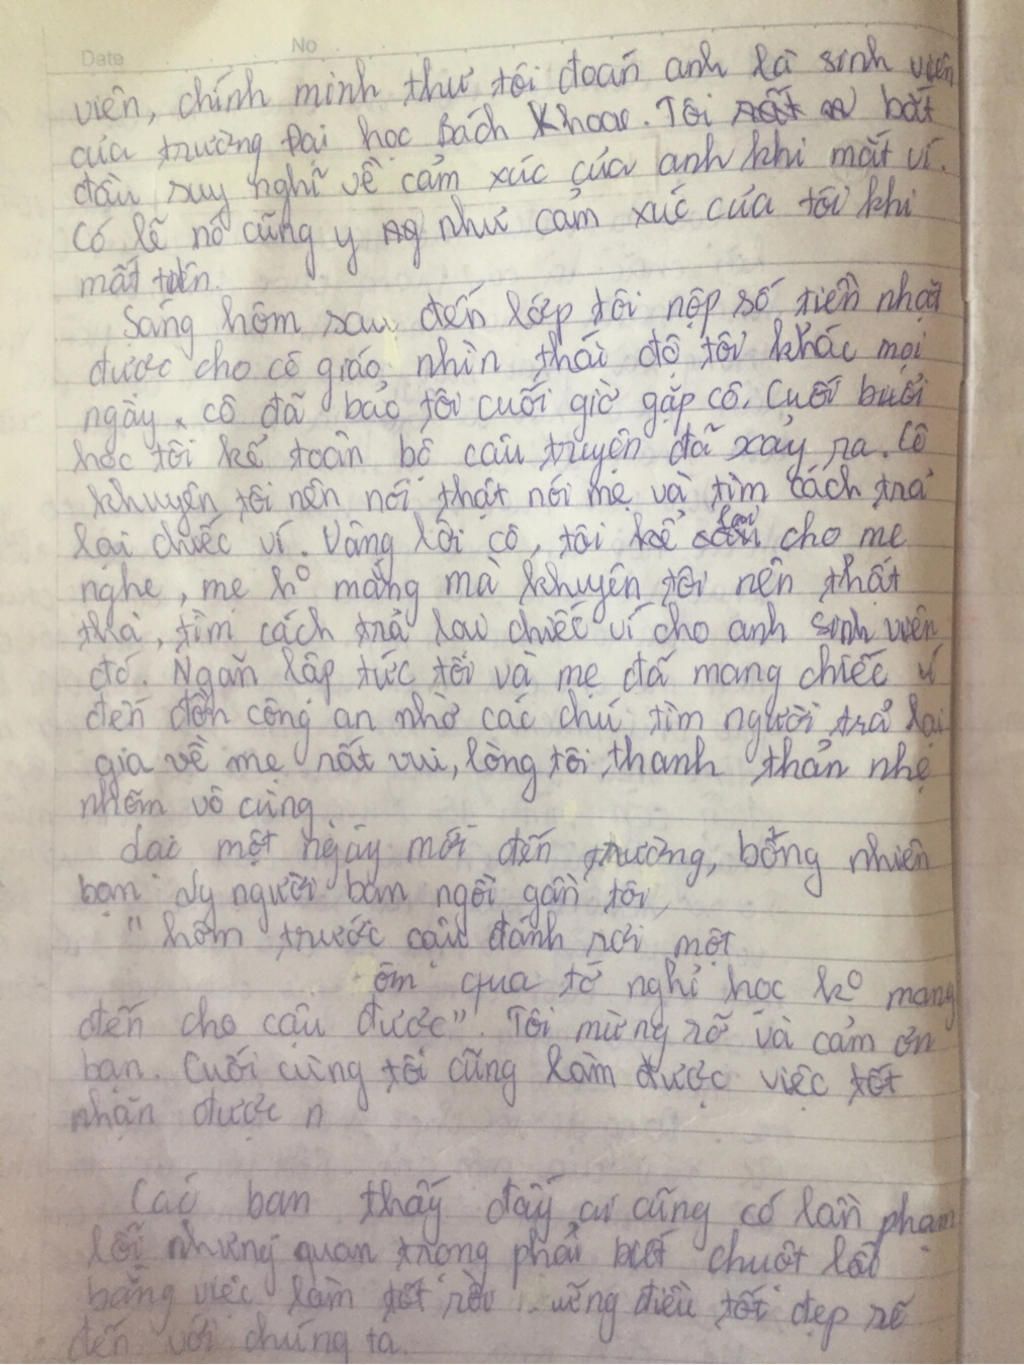 Date No
viên, chính minh thư tôi đoán anh là sinh viên
của trường Đại học Bách Khoa. Tôi bắt
đầu suy nghĩ về cảm xúc của anh khi mất ví.
Có lẽ nó cũng y như cảm xúc của tôi khi
mất tiền.
Sáng hôm sau đến lớp tôi nộp số tiền nhặt
được cho cô giáo, nhìn thái độ tôi khác mọi
ngày, cô đã bảo tôi cuối giờ gặp cô. Cuối buổi
học tôi kể toàn bộ câu truyện đã xảy ra. Cô
khuyên tôi nên nói thật nói mẹ và tìm cách trả
lại chiếc ví. Vâng lời cô, tôi kể lại cho mẹ
nghe, mẹ k° mắng mà khuyên tôi nên thật
thà, tìm cách trả lại chiếc ví cho anh sinh viên
đó. Ngay lập tức tôi và mẹ đã mang chiếc ví
đến đồn công an nhờ các chú tìm người trả lại
gia về mẹ rất vui, lòng tôi thanh thản nhẹ
nhõm vô cùng.
Lại một ngày mới đến trường, bỗng nhiên
bạn Vy người bạn ngồi gần tôi,
" hôm trước cậu đánh rơi một
ôm qua tớ nghỉ học k° mang
đến cho cậu được". Tôi mừng rỡ và cảm ơn
bạn. Cuối cùng tôi cũng làm được việc tốt
nhận được n
Các bạn thấy đấy ai cũng có lần phạm
lỗi nhưng quan trọng phải biết chuột lỗi
bằng việc làm tốt rồi ững điều tốt đẹp sẽ
đến với chúng ta.